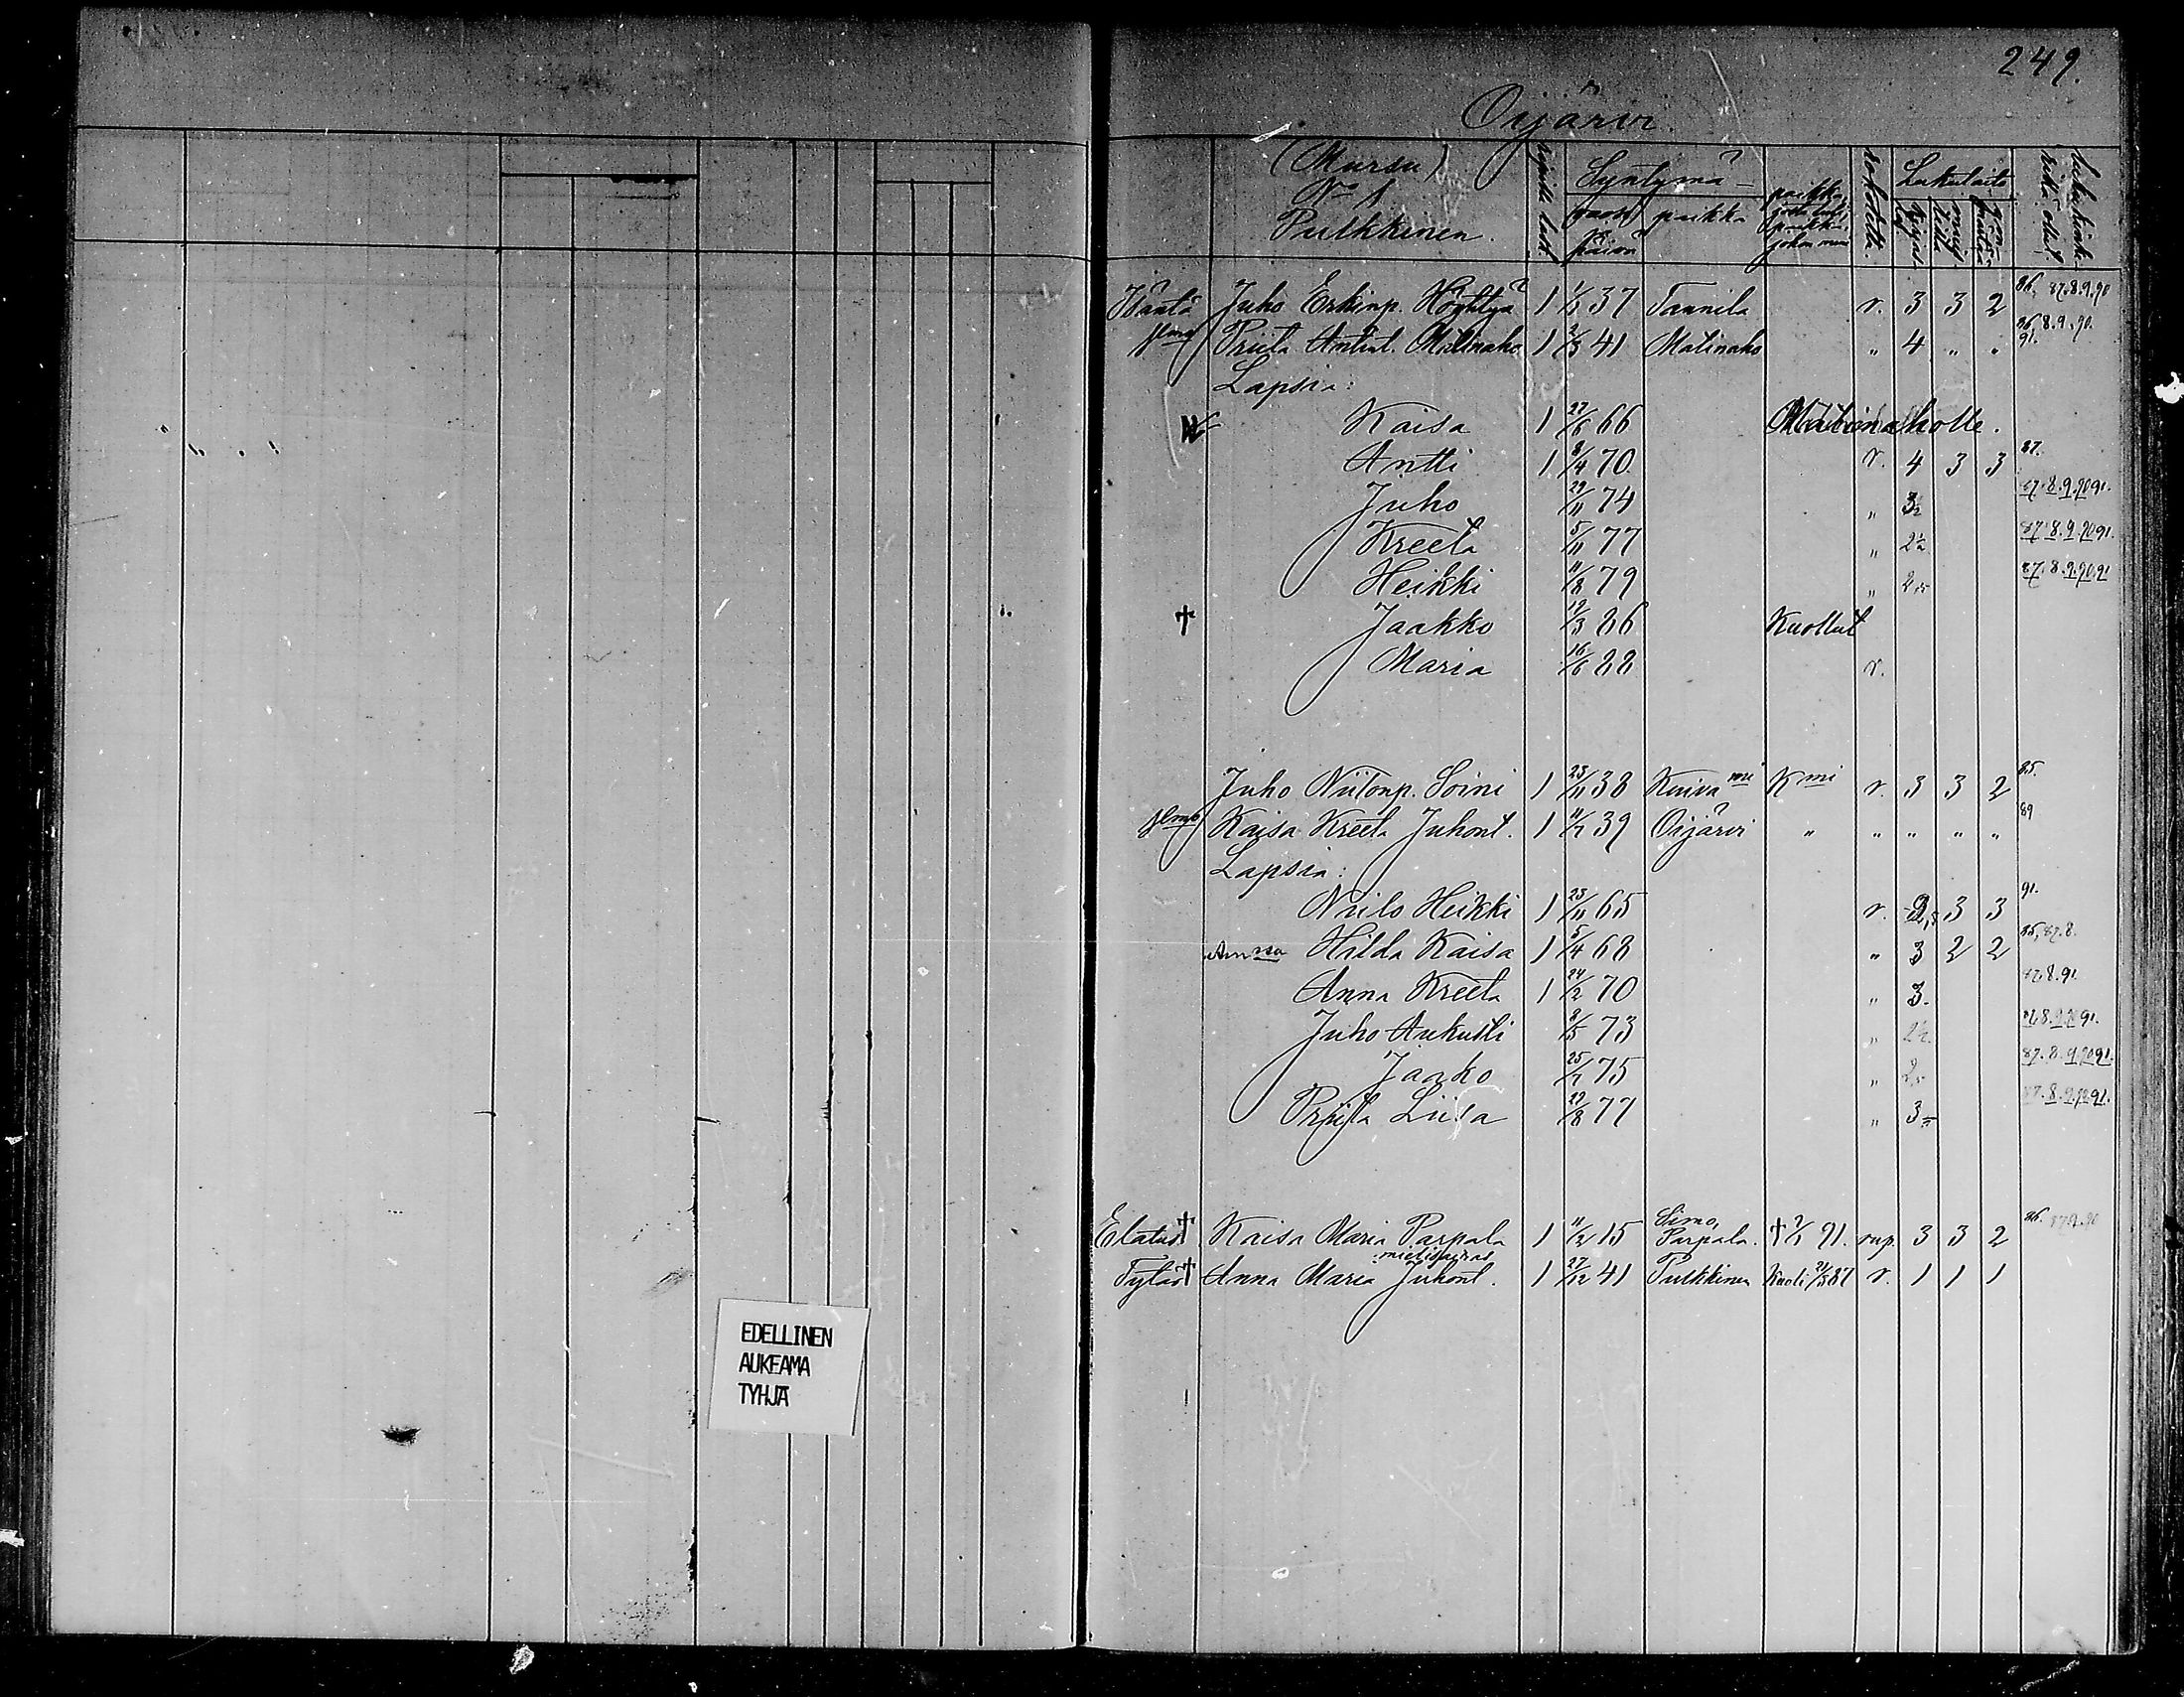 249.
Oijärvi.
(Mursu)
No 1
Pulkkinen.
Syntymä-
vuosi ja päivä
paikka
Lukutaito
Isäntä Juho Erkinp. Höyhtyä 1 1/1 37 Tannila r. 3 3 2 86, 87.8.9.90
Priita Antint. Matinaho 1 2/3 41 Matinaho " 4 " " 86, 8.9.90. 91.
Lapsia:
Kaisa 1 27/6 66 Matinaholle.
Antti 1 8/4 70 r. 4 3 3 87.
Juho 29/11 74 " 87.8.9.90 91.
Kreeta 5/11 77 " 2½ 87.8.9.90 91.
Heikki 11/8 79 " 87.8.9.90.91
† Jaakko 19/3 86 Kuollut
Maria 16/6 88 r.
Juho Niilonp. Soini 1 23/11 38 Kuivami Kmi r. 3 3 2 85.
Kaisa Kreeta Juhont. 1 11/7 39 Oijärvi " " " " " 89
Lapsia:
Niilo Heikki 1 23/11 65 r. 3 3 91.
Hilda Kaisa 1 5/4 68 " 3 2 2 86,87.8.
Anna Kreeta 1 24/2 70 " 3. 87.8.91.
Juho Aukusti 8/5 73 " 2½. 87.8.9.90 91.
Jaako 25/7 75 " 87.8.9.90 91.
Priita Liisa 29/8 77 " 3 87.8.9.90 91.
Elatus † Kaisa Maria Parpala 1 11/2 15 Simo, Parpala. † 2/1 91. rup. 3 3 2 86. 87.9.90
mielisairas
Tytär † Anna Maria Juhont. 1 27/12 41 Pulkkinen Kuoli 21/3 87 r. 1 1 1
EDELLINEN
AUKEAMA
TYHJÄ